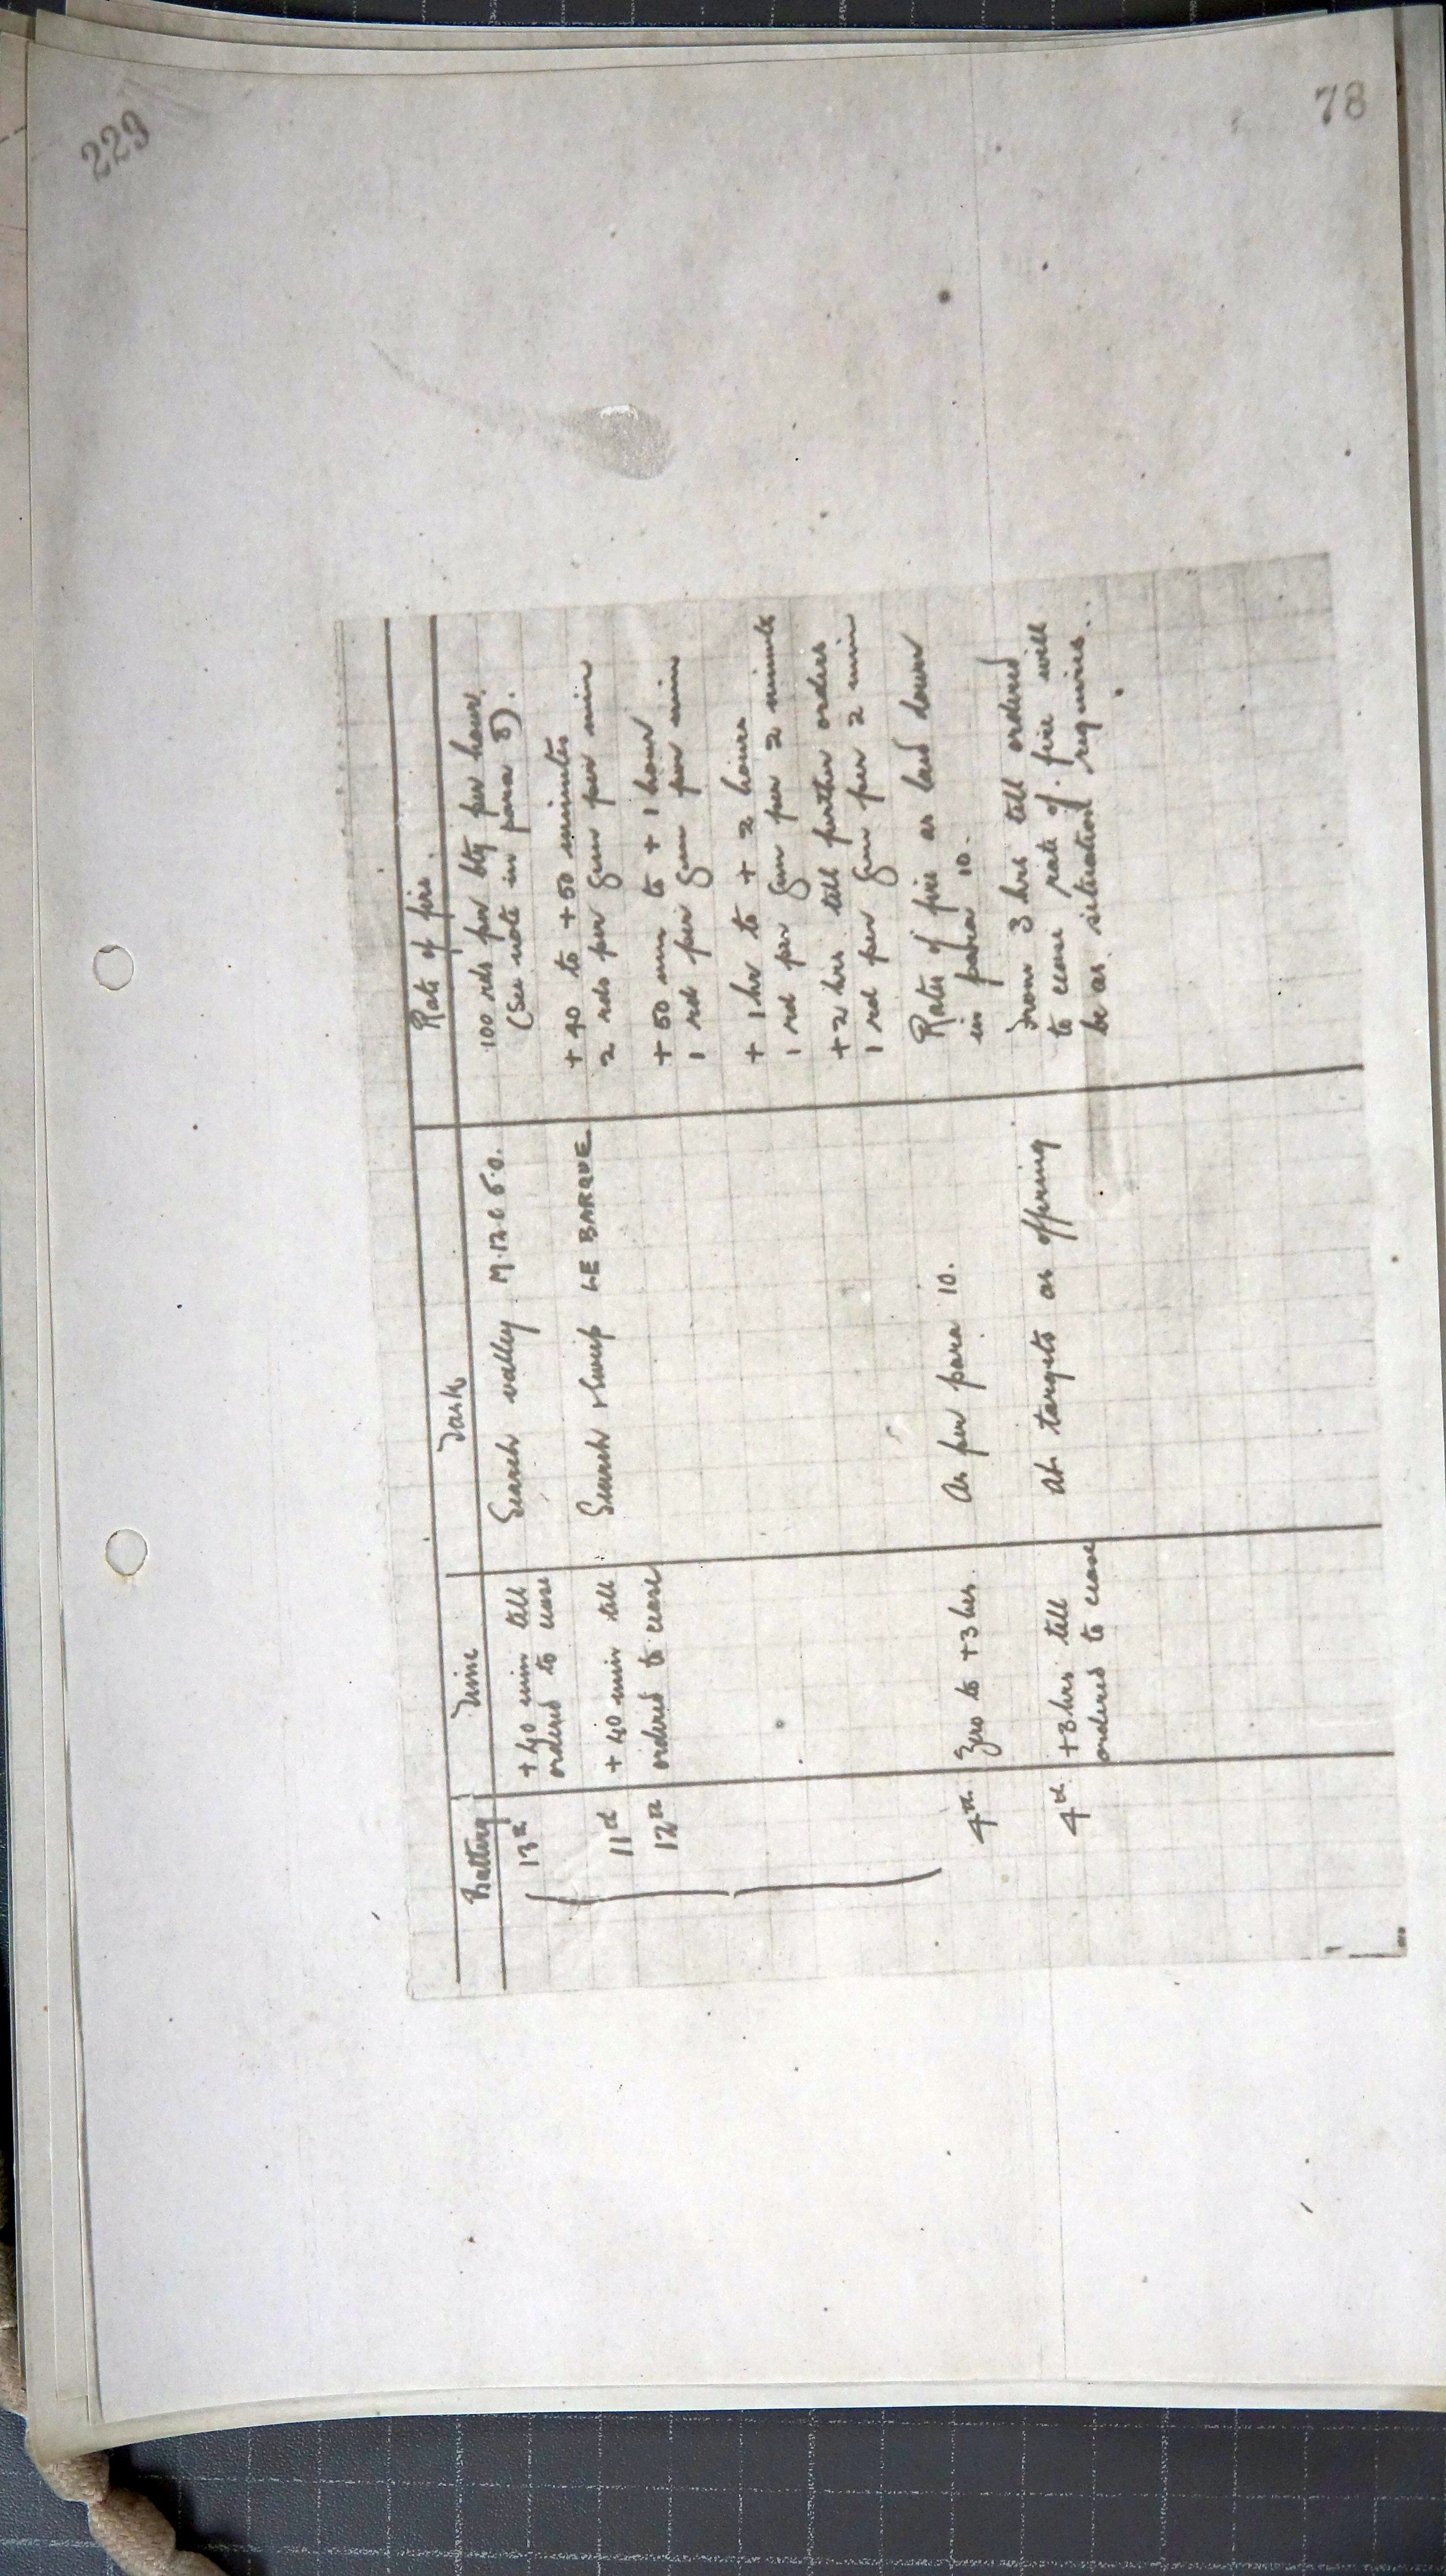 229
78
Battery Time Task Rate of fire.
13th +40 min till Search valley M.12.c.5.0. 100 rds per bty per hour.
ordered to cease (See note in para 8).
11th +40 min till Search & sweep LE BARQUE + 40 to + 50 minutes
2 rds per gun per min
12th ordered to cease + 50 min to + 1 hour
1 rd per gun per min
+ 1 hr to + 2 hours
1 rd per gun per 2 minutes
+ 2 hrs till further orders
1 rd per gun per 2 min
4th Zero to +3 hrs. As per para 10. Rates of fire as laid down
in para 10.
4th +3 hrs till At targets as offering From 3 hrs till ordered
ordered to cease to cease rate of fire will
be as situation requires.